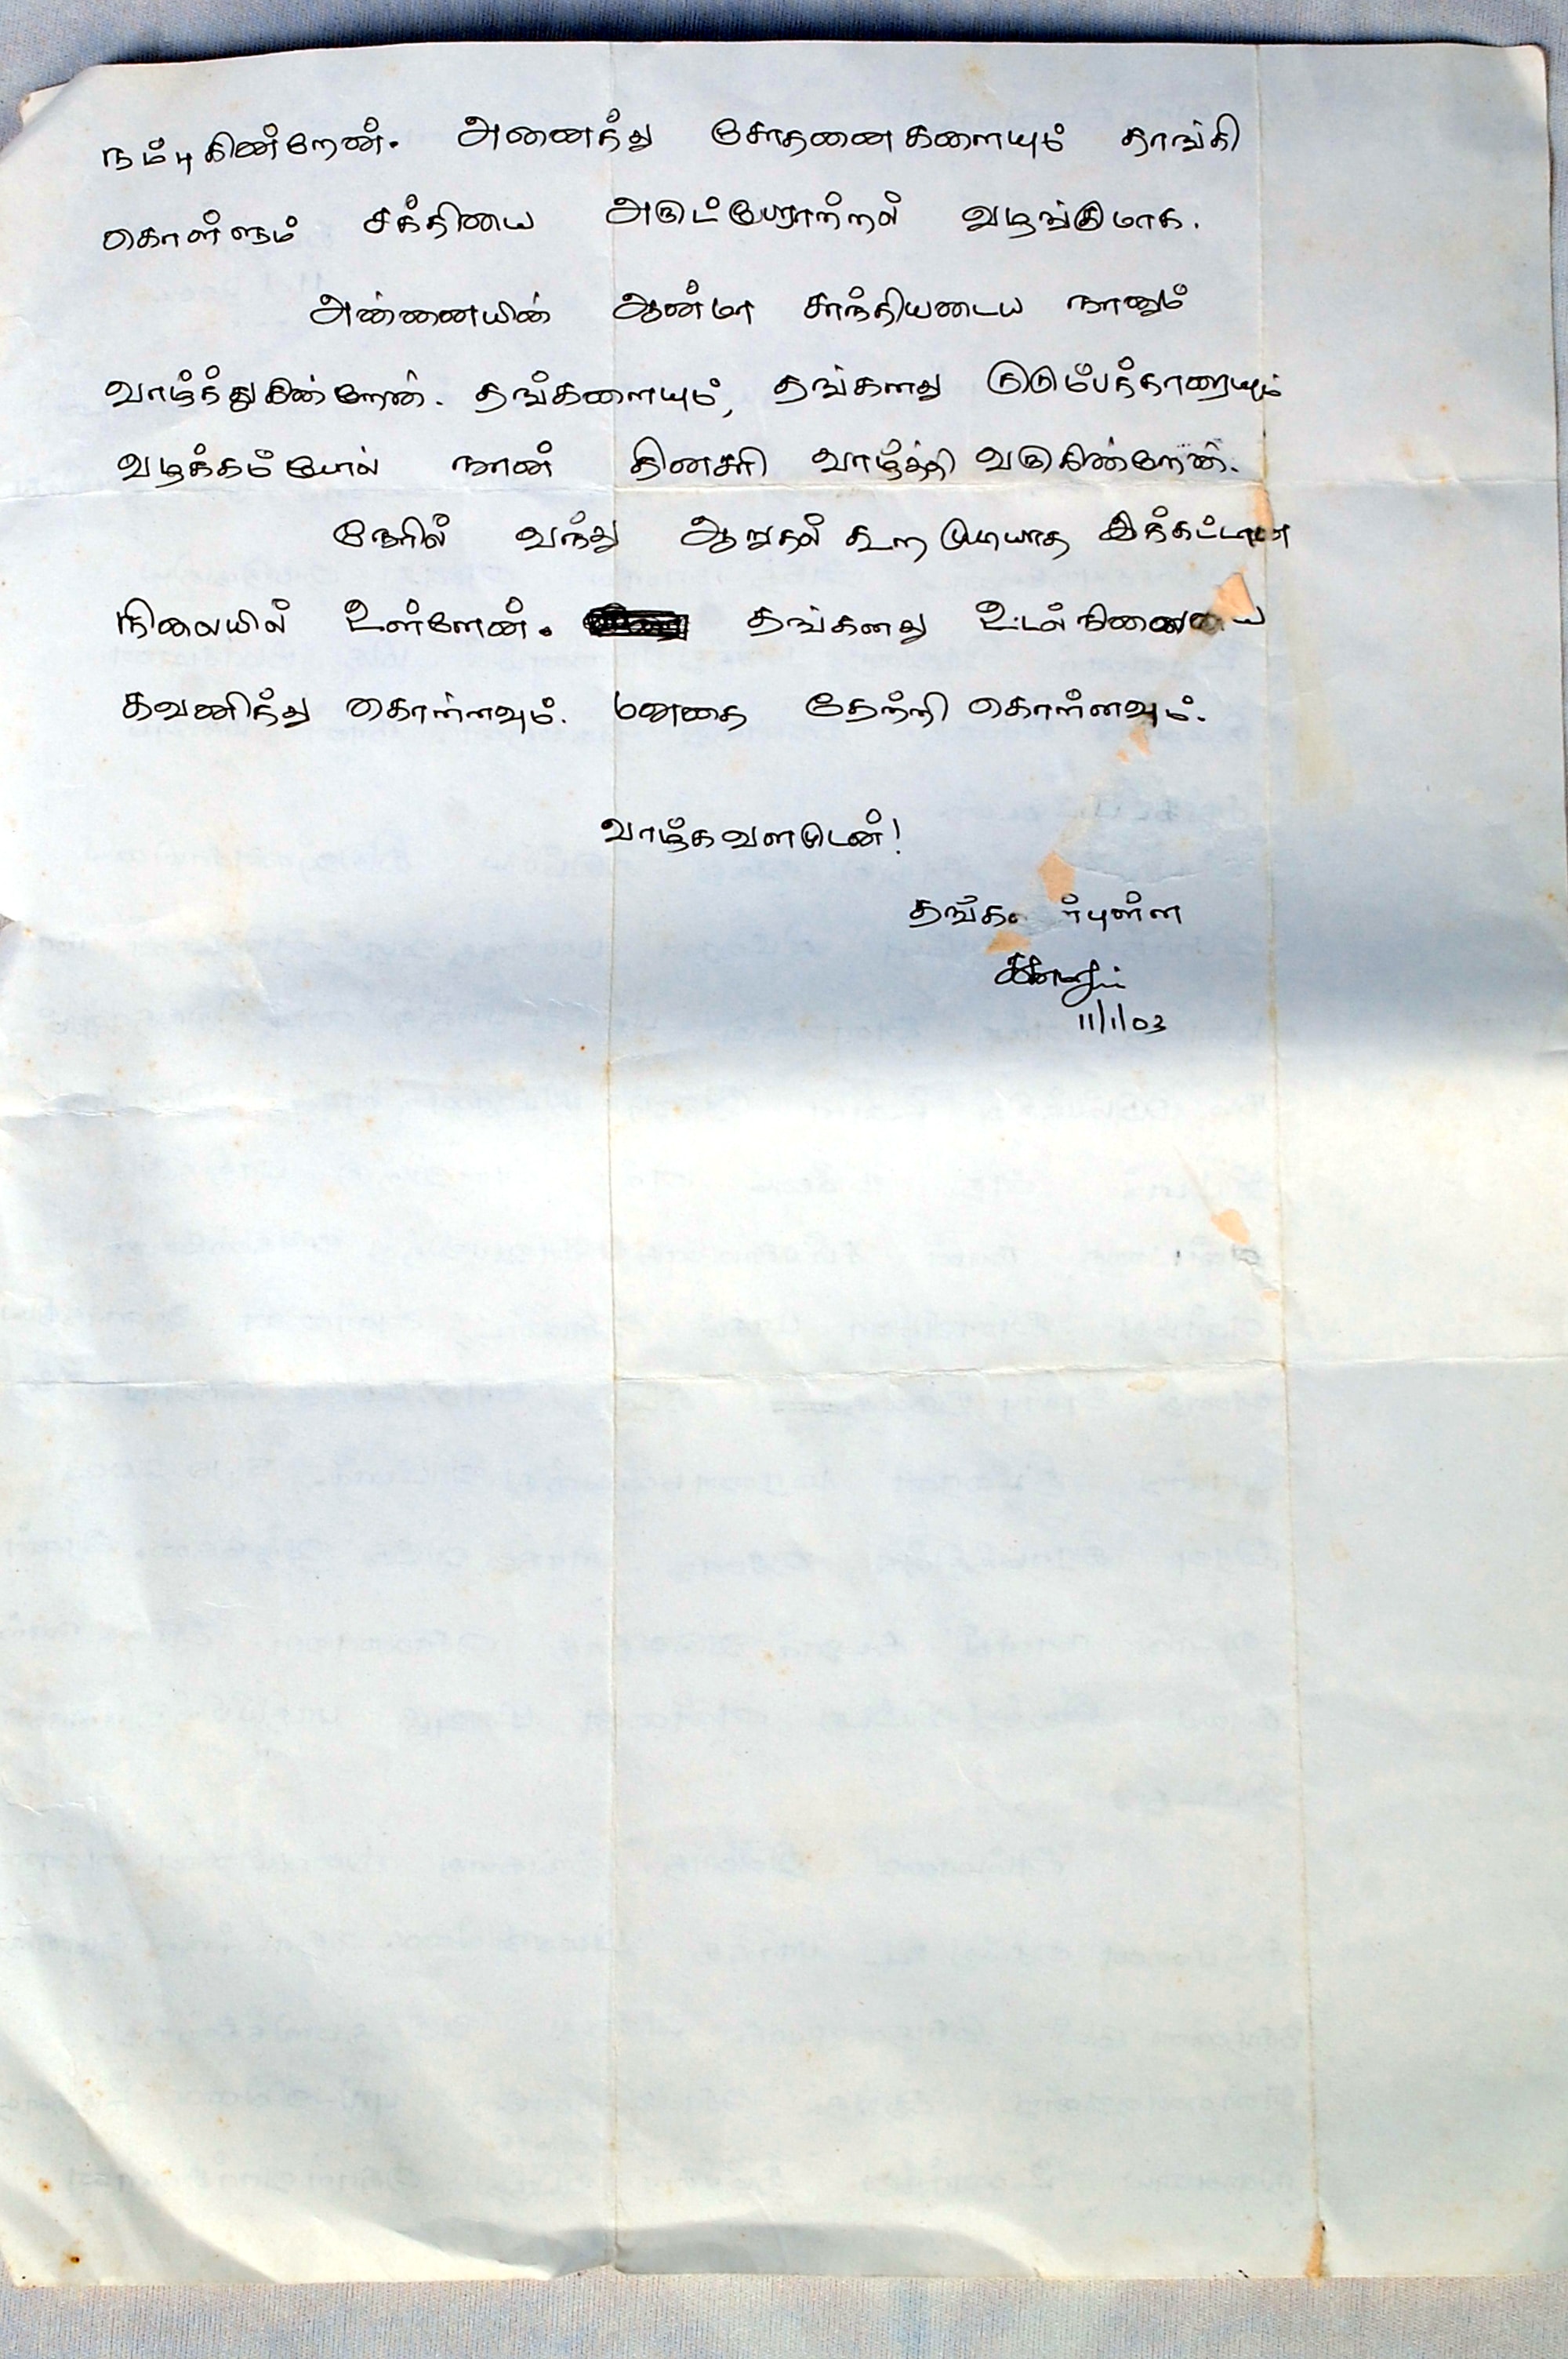 நம்புகின்றேன். அனைத்து சோதனைகளையும் தாங்கி
கொள்ளும் சக்தியை அருட்பேராற்றல் வழங்குமாக.
அன்னையின் ஆன்மா சாந்தியடைய நானும்
வாழ்த்துகின்றேன். தங்களையும், தங்களது குடும்பத்தாரையும்
வழக்கம்போல் நான் தினசரி வாழ்த்தி வருகின்றேன்.
நேரில் வந்து ஆறுதல் கூற முடியாத இக்கட்டான
நிலையில் உள்ளேன். தங்களது உடல்நிலையை
கவனித்து கொள்ளவும். மனதை தேற்றி கொள்ளவும்.
வாழ்க வளமுடன்!
11/1/03